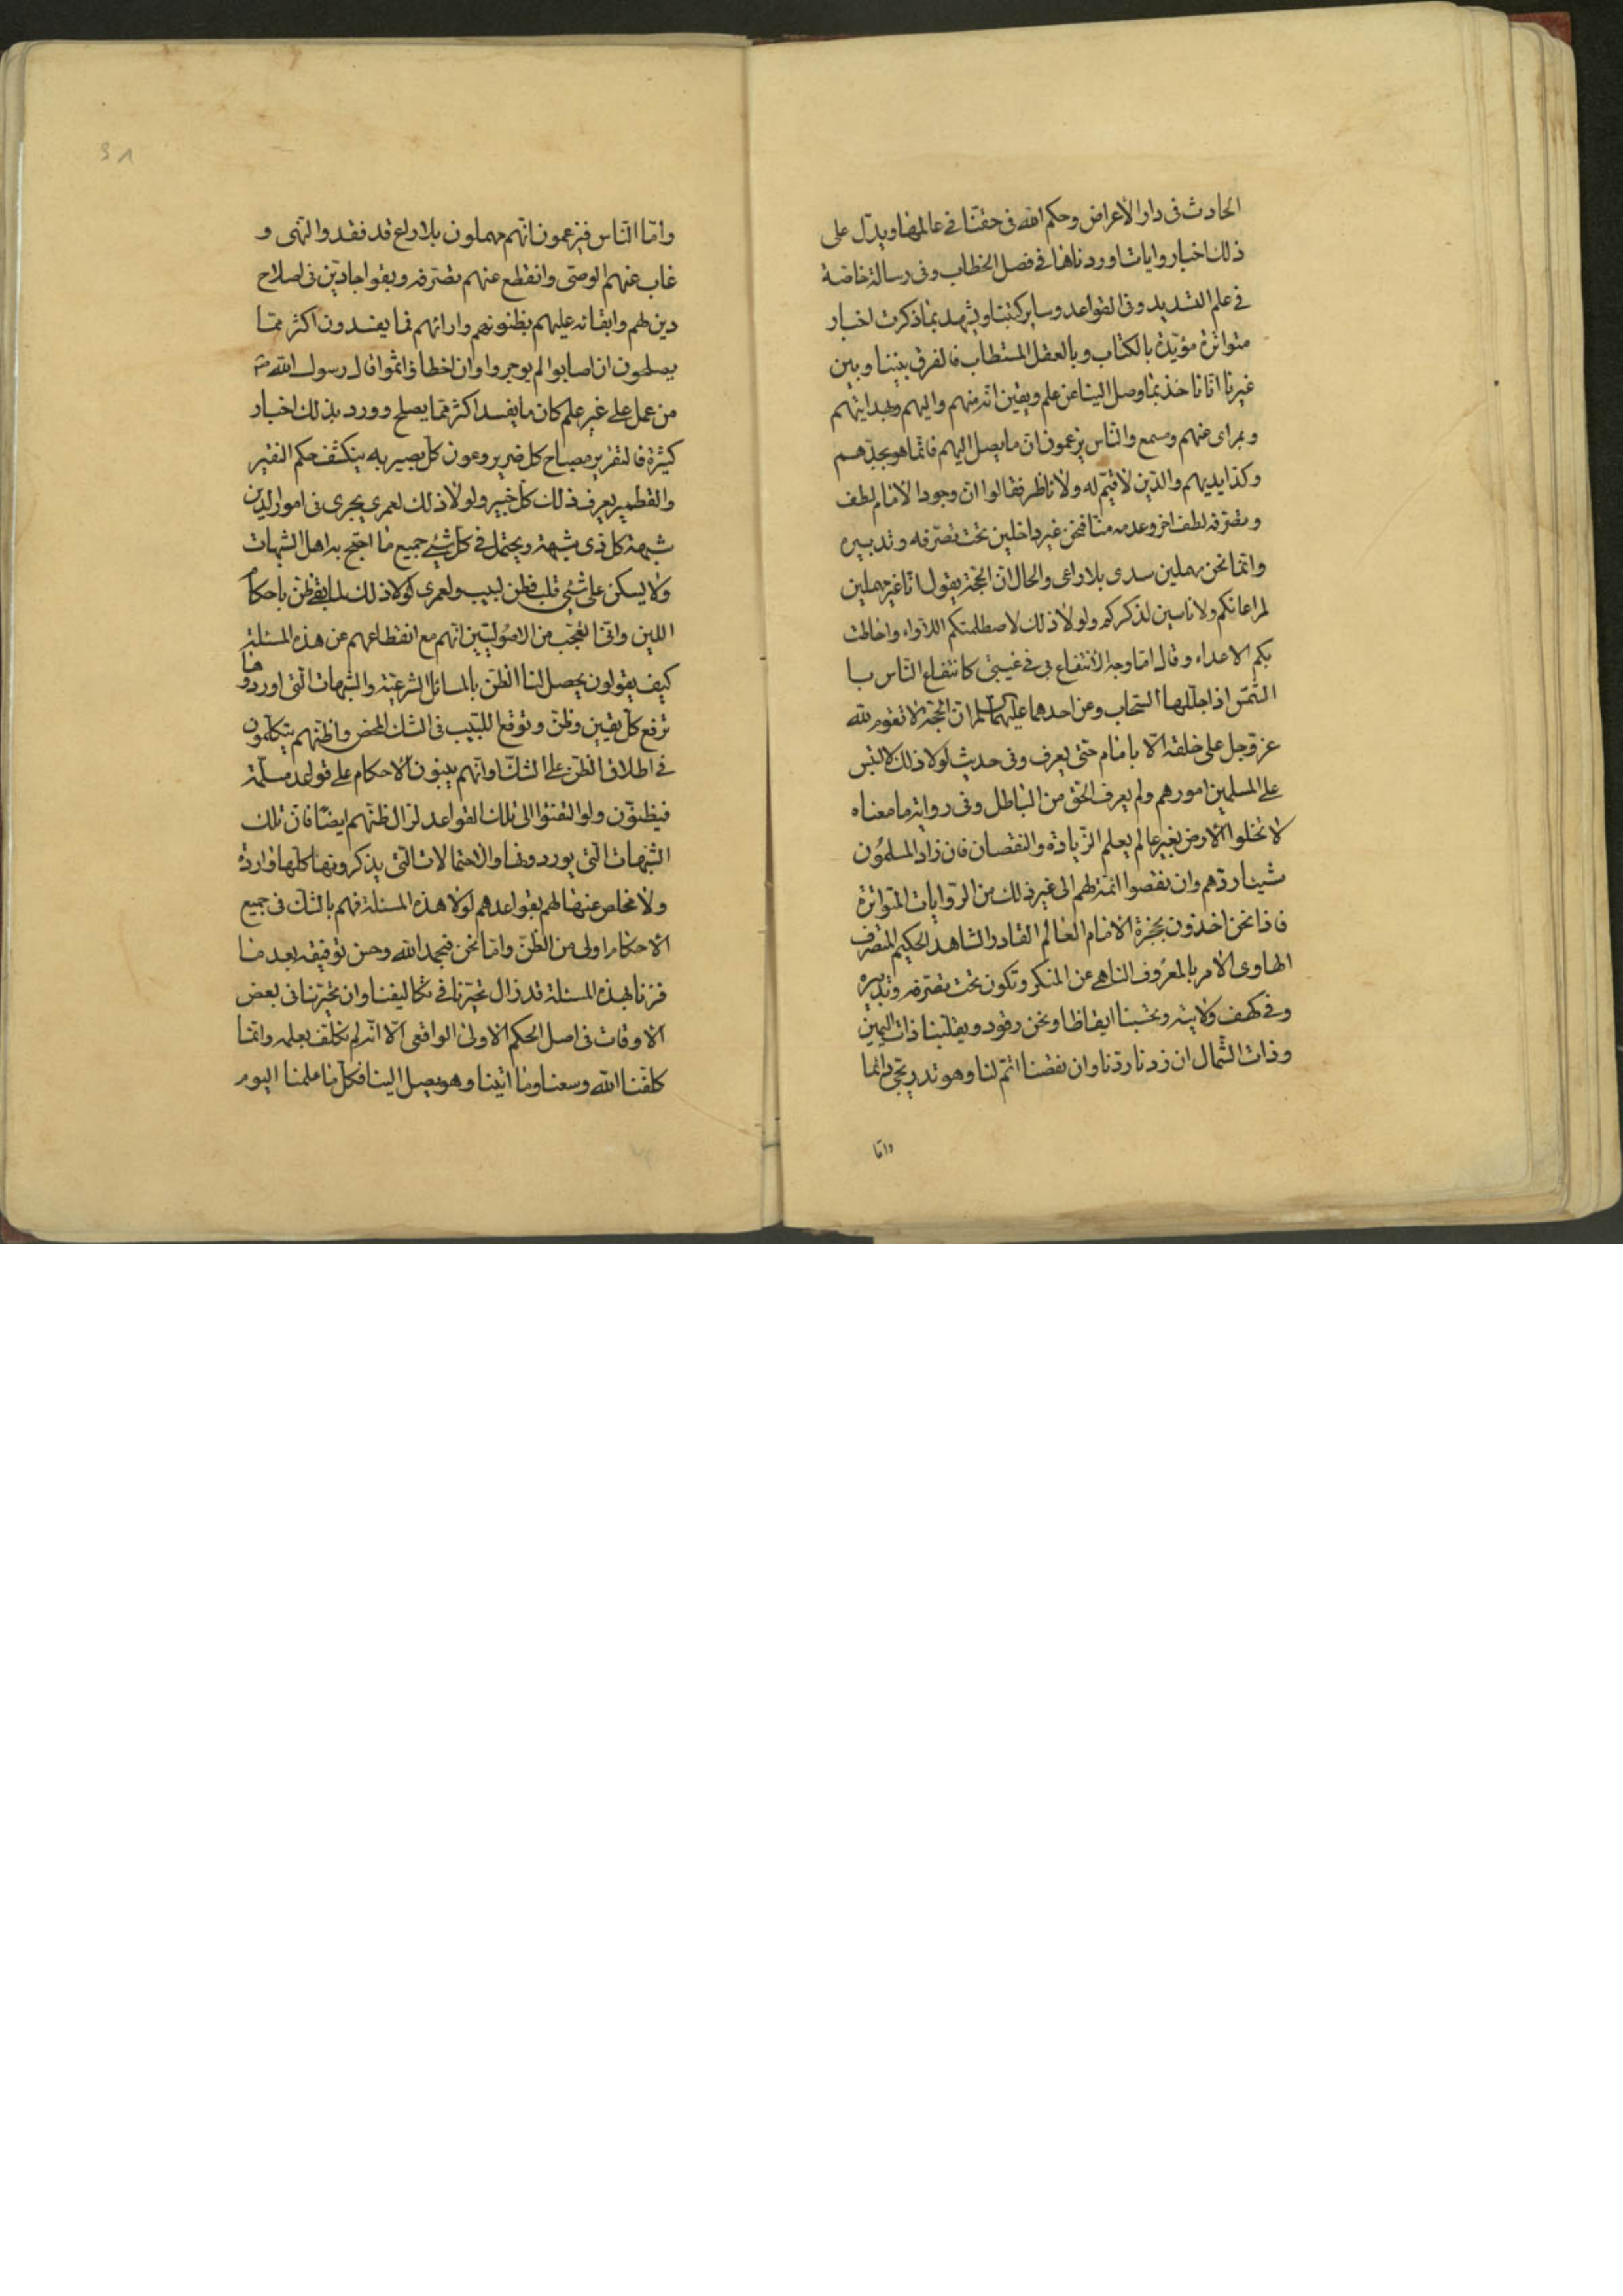 الحادث فى دار الأعراض وحكم الله فى حقنا فى عالمها ويدل على
ذلك اخبار وايات اوردناها فى فصل الخطاب وفى رسالة خاصة
فى علم التسديد وفى القواعد وساير كتبنا ويشهد بما ذكرت اخبار
متواترة مؤيدة بالكتاب وبالعقل المستطاب فالفرق بيننا وبين
غيرنا انا ناخذ بما وصل الينا عن علم ويقين انه منهم واليهم وبهدايتهم
وبمرأى منهم ومسمع والناس يزعمون ان ما يصل اليهم فانما هو بجدهم
وكد ايديهم والدين لا قيم له ولا ناظر فقالوا ان وجود الامام لطف
وتصرفه لطف اخر وعدمه منا فنحن غير داخلين تحت تصرفه وتدبيره
وانما نحن مهملين سدى بلا راعى والحال ان الحجة يقول انا غير مهملين
لمراعاتكم ولا ناسين لذكركم ولولا ذلك لاصطلمتكم اللاواء واحاطت
بكم الاعداء وقال اما وجه الانتفاع بى فى غيبتى كانتفاع الناس با
الشمس اذا جللها السحاب وعن احدهما عليهما السلم ان الحجة لا تقوم لله
عز وجل على خلقه الا بامام حتى يعرف وفى حديث لولا ذلك لالتبس
على المسلمين امورهم ولم يعرف الحق من الباطل وفى رواية ما معناه
لا تخلوا الارض بغير عالم يعلم الزيادة والنقصان فان زاد المسلمون
شيئا ردهم وان نقصوا اتمه لهم الى غير ذلك من الروايات المتواترة
فاذا نحن اخذون بحجزة الامام العالم القادر الشاهد الحكيم المتصرف
الهادى الامر بالمعروف الناهى عن المنكر ونكون تحت تصرفه وتدبيره
وفى كهف ولايته وتحسبنا ايقاظا ونحن رقود ويقلبنا ذات اليمين
وذات الشمال ان زدنا ردنا وان نقصنا اتم لنا وهو تدريجى دائما
واما
واما الناس فيزعمون انهم مهملون بلا راع قد فقدوا النبى و
غاب عنهم الوصى وانقطع عنهم تصرفه وبقوا جادين فى اصلاح
دين لهم وابقائه عليهم بظنونهم وارائهم فما يفسدون اكثر مما
يصلحون ان اصابوا لم يوجروا وان اخطاؤا اثموا قال رسول الله ص
من عمل على غير علم كان ما يفسد اكثر مما يصلح وورد بذلك اخبار
كثيرة فالتقرير مصباح كل ضرير وعون كل بصير به ينكشف حكم النقير
والقطمير يعرف ذلك كل خبير ولولا ذلك لعمرى يجرى فى امور الدين
شبهة كل ذى شبهة ويحتمل فى كل شئ جميع ما احتج به اهل الشبهات
ولا يسكن على شئ قلب فطن لبيب ولعمرى لولا ذلك لما بقى ظن باحكام
الدين وانى اتعجب من الاصوليين انهم مع انقطاعهم عن هذه المسئلة
كيف يقولون يحصل لنا الظن بالمسائل الشرعية والشبهات التى اوردوها
ترفع كل يقين وظن وتوقع اللبيب فى الشك المحض واظنهم يتكلمون
فى اطلاق الظن على الشك او انهم يبنون الاحكام على قواعد مسلمة
فيظنون ولو التفتوا الى تلك القواعد لزال ظنهم ايضا فان تلك
الشبهات التى يوردونها والاحتمالات التى يذكرونها كلها واردة
ولا مخلص عنها لهم بقواعدهم لولا هذه المسئلة فهم بالشك فى جميع
الاحكام اولى من الظن واما نحن فبحمد الله وحسن توفيقه بعد ما
فزنا بهذه المسئلة قد زال تحيرنا فى تكاليفنا وان تحيرنا فى بعض
الاوقات فى اصل الحكم الاولى الواقعى الا انه لم نكلف بعلمه وانما
كلفنا الله وسعنا وما اتينا وهو يصل الينا فكل ما علمنا اليوم